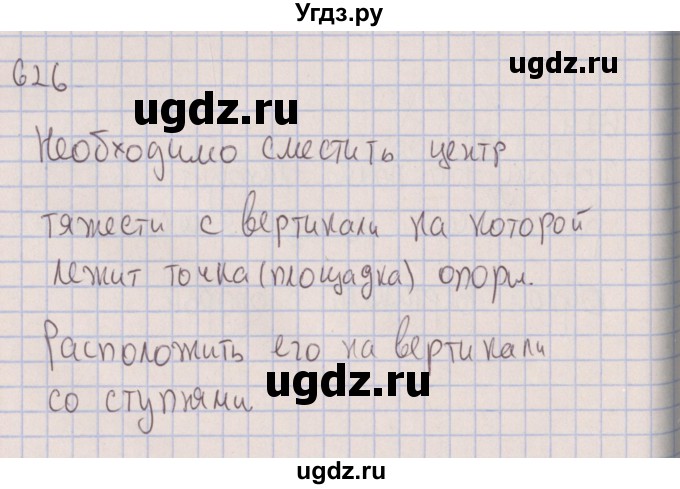 Угдз.ру
ugdz.ru
626
ugdz.ru
Необходимо сместить центр
тяжести с вертикали на которой
лежит точка (площадка) опоры.
ugdz.ru
Расположить его на вертикали
ugdz.ru
со ступнями.
ugdz.ru